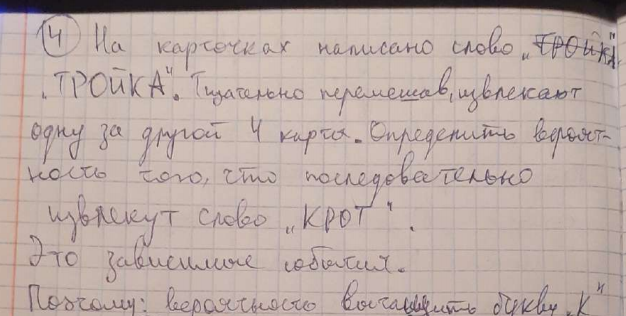 4 На карточках написано слово „ТРОЙКА"
„ТРОЙКА". Тщательно перемешав, извлекают
одну за другой 4 карты. Определить вероят-
ность того, что последовательно
извлекут слово „КРОТ".
Это зависимые события.
Поэтому: вероятность вытащить букву „К"